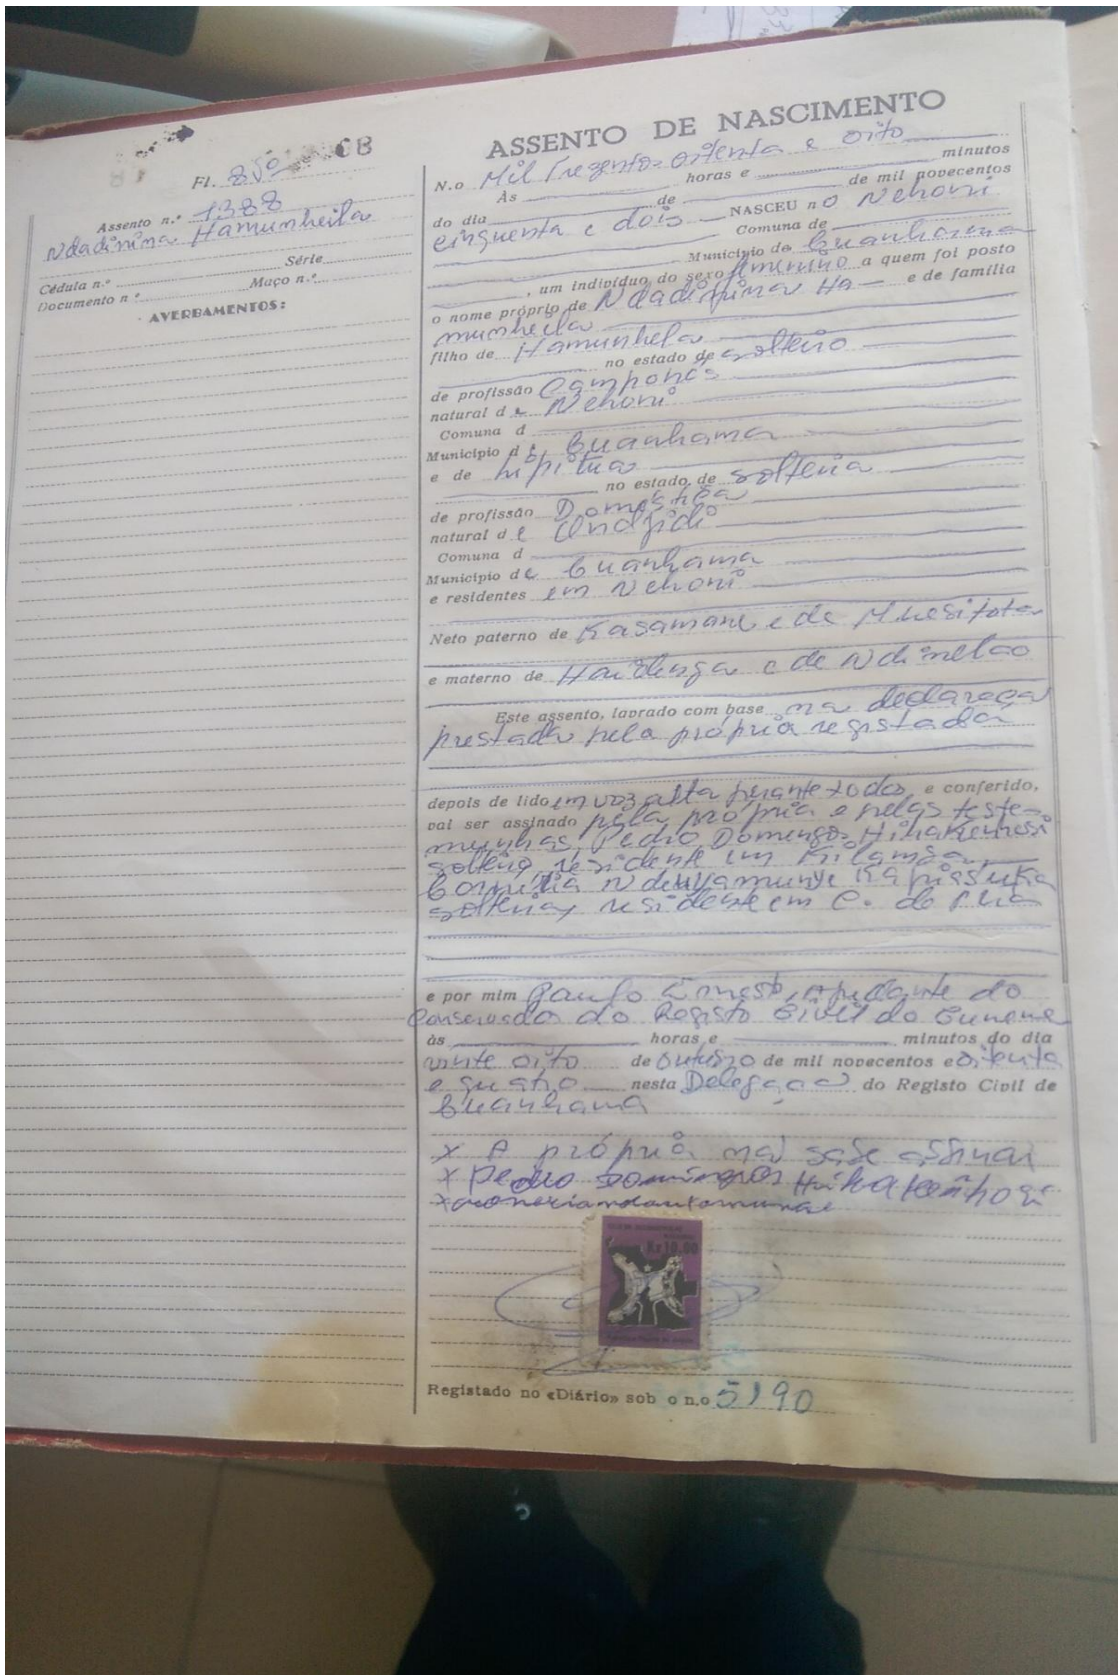 ASSENTO DE NASCIMENTO
Fl. 85º
Assento n.º 1388
Ndadinina Hamunheila
Cédula n.º Série
Documento n.º Maço n.º
AVERBAMENTOS:
N.o Mil Trezentos oitenta e oito
Às horas e minutos
do dia de de mil novecentos
cinquenta e dois NASCEU no Nehoni
Comuna de
Município de Cuanhama
, um indivíduo do sexo femenino a quem foi posto
o nome próprio de Ha— e de família
munheila
filho de Hamunhela
no estado de solteiro
de profissão Camponês
natural de Nehoni
Comuna d
Município de Cuanhama
e de
no estado de solteria
de profissão Doméstica
natural de
Comuna d
Município de Cuanhama
e residentes em Nehoni
Neto paterno de Kasamane e de
e materno de e de
Este assento, lavrado com base na declaraçã
prestada pela própria registada
depois de lido em voz alta perante todos, e conferido,
vai ser assinado pela própria e pelas teste-
munhas, Pedro Domingos
solteiro residente em
solteria, residente em C. do
e por mim Paulo Ernesto, Ajudante do
Conservador do Registo Civil do Cunene
às horas e minutos do dia
vinte oito de outubro de mil novecentos e oitenta
e quatro nesta Delegaçã do Registo Civil de
Cuanhama
x A própria não sabe assinar
x Pedro Domingos
Kz 10,00
Registado no «Diário» sob o n.o 5190